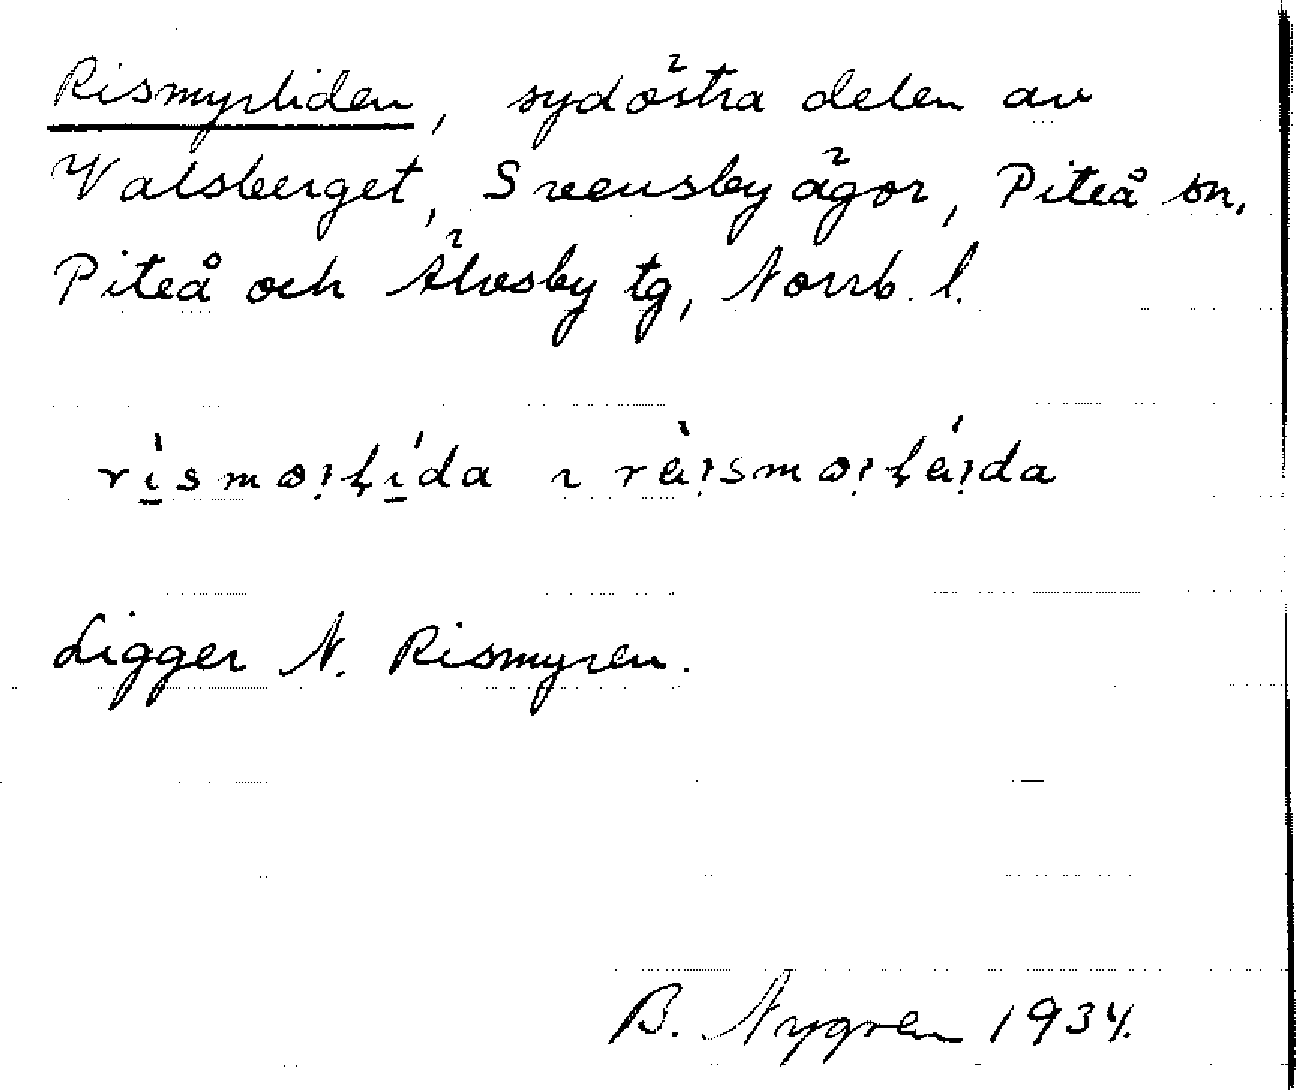 Rismyrliden, sydöstra delen av
Valsberget, Svensby ägor, Piteå sn,
Piteå och Älvsby tg, Norrb. l.
Ligger N. Rismyren.
B. Nygren 1934.